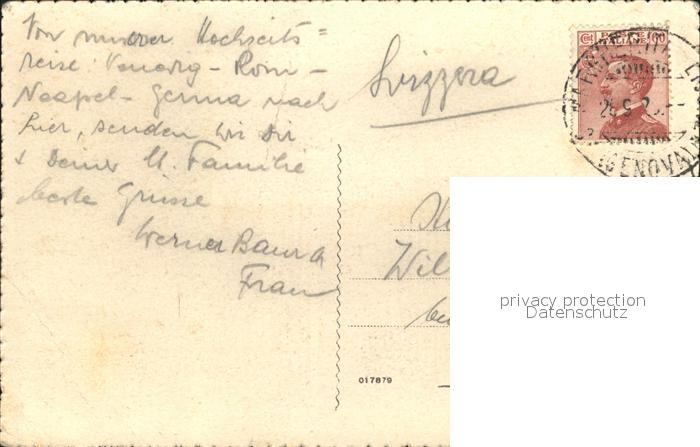 Von unserer Hochzeits=
reise Venedig - Rom -
Neapel - Genua nach
hier, senden wir Dir
& Deiner ll. Familie
beste Grüsse
Werner Baur &
Frau
Svizzera
Wil
017879
CENT 60
GENOVA
privacy protection
Datenschutz